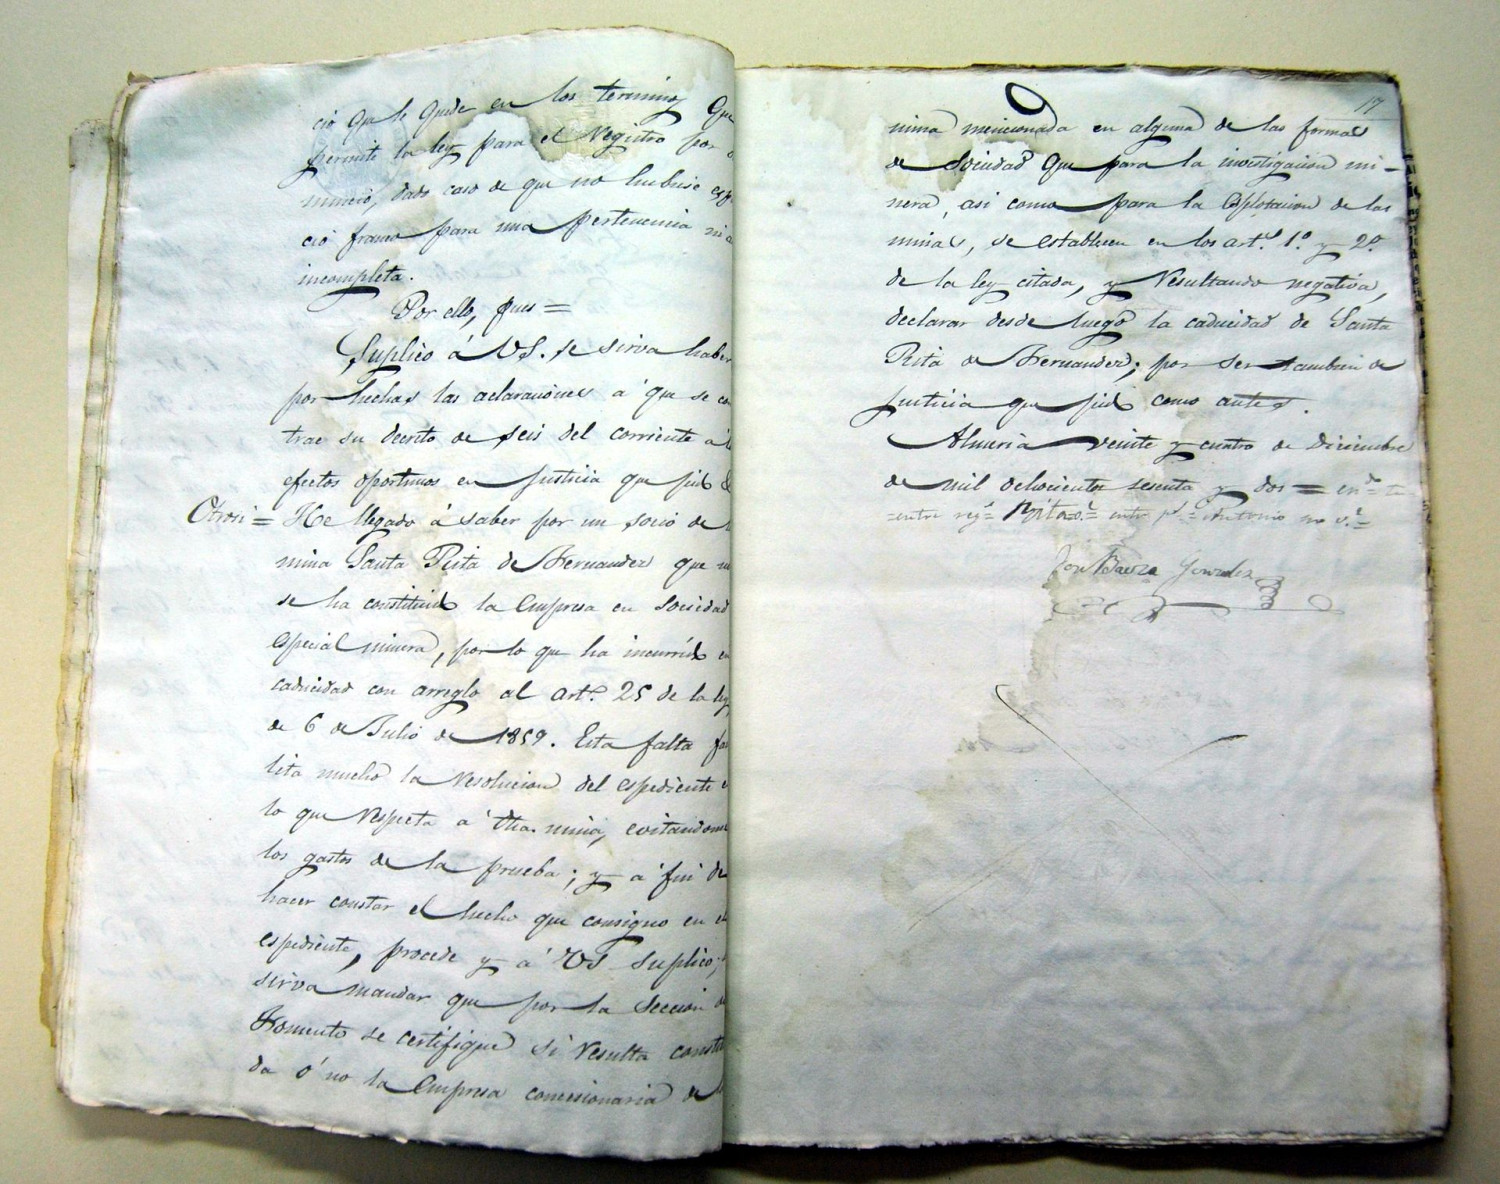 cio que le quede en los terminos que
permite la ley para el Registro por
nuncio, dado caso de que no hubiese esp
cio franco para una pertenencia ni
incompleta.
Por ello, pues =
Suplico á VS. se sirva haber
por hechas las aclaraciones á que se con
trae su decreto de seis del corriente á l
efectos oportunos en justicia que pido &
Otrosi = He llegado á saber por un socio de l
mina Santa Rita de Hernandez que no
se ha constituido la Empresa en Sociedad
especial minera, por lo que ha incurrido en
caducidad con arreglo al artº 25 de la ley
de 6 de Julio de 1859. Esta falta fac
lita mucho la resolucion del espediente e
lo que respecta á dha. mina, evitandome
los gastos de la prueba; y á fin de
hacer constar el hecho que consigno en el
espediente, procede y á VS suplico,
sirva mandar que por la Seccion de
Fomento se certifique si resulta constitui
da ó no la Empresa concesionaria de l
17
mina mencionada en alguna de las formas
de Sociedad que para la investigacion mi-
nera, asi como para la esplotacion de las
minas, se establecen en los artº 1º y 2º
de la ley citada, y resultando negativa,
declarar desde luego la caducidad de Santa
Rita de Hernandez; por ser tambien de
justicia que pido como antes.
Almeria veinte y cuatro de Diciembre
de mil ochocientos sesenta y dos =
=entre regs = Rita = entre ps = Antonio no v.e =
José Baeza Gonzalez